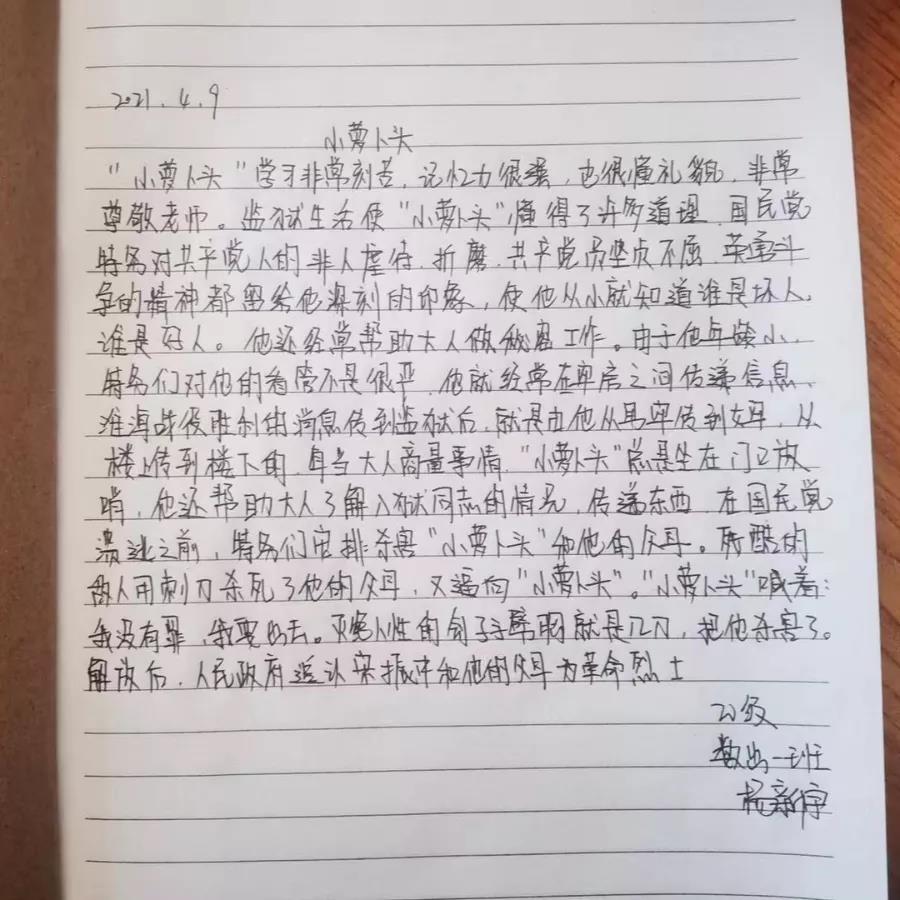 2021.4.9
小萝卜头
"小萝卜头"学习非常刻苦,记忆力很强,也很懂礼貌,非常
尊敬老师。监狱生活使"小萝卜头"懂得了许多道理,国民党
特务对共产党人的非人虐待、折磨,共产党员坚贞不屈、英勇斗
争的精神都留给他深刻的印象,使他从小就知道谁是坏人,
谁是好人。他还经常帮助大人做秘密工作。由于他年龄小,
特务们对他的看管不是很严,他就经常在牢房之间传递信息、
淮海战役胜利的消息传到监狱后,就是由他从男牢传到女牢,从
楼上传到楼下的,每当大人商量事情,"小萝卜头"总是坐在门口放
哨,他还帮助大人了解入狱同志的情况,传递东西,在国民党
溃逃之前,特务们安排杀害"小萝卜头"和他的父母。残酷的
敌人用刺刀杀死了他的父母,又逼向"小萝卜头"。"小萝卜头"喊着:
我没有罪,我要出去。灭绝人性的刽子手劈胸就是几刀,把他杀害了。
解放后,人民政府追认宋振中和他的父母为革命烈士
20级
数出一班
杨新宇